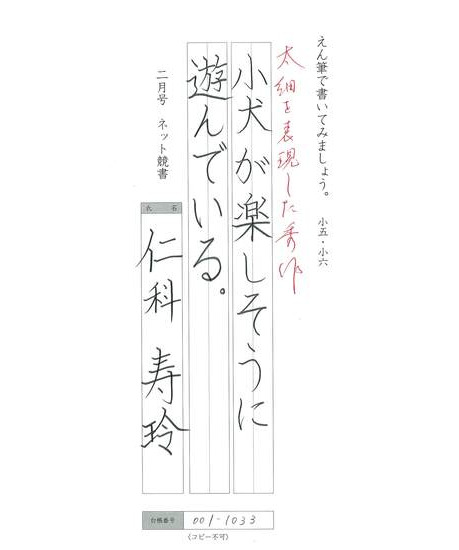 えん筆で書いてみましょう。 小五・小六
太細を表現した秀作
小犬が楽しそうに
遊んでいる。
二月号 ネット競書
氏名
仁科 寿玲
台帳番号 001-1033
(コピー不可)